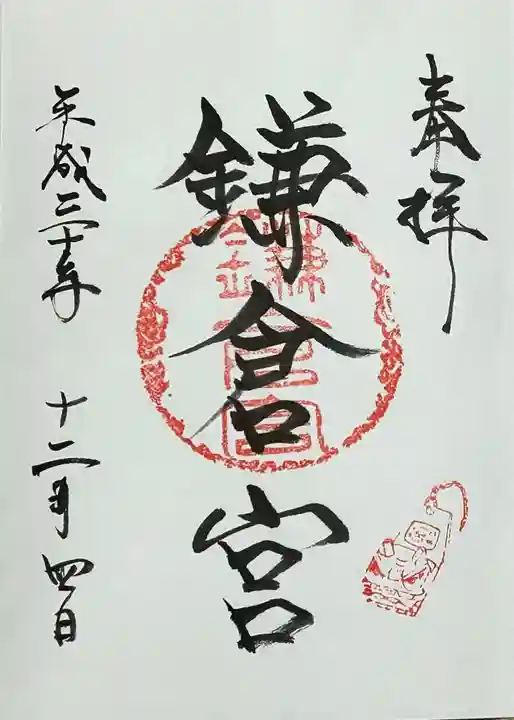 奉拝
鎌倉宮
鎌倉宮
平成三十年 十二月四日